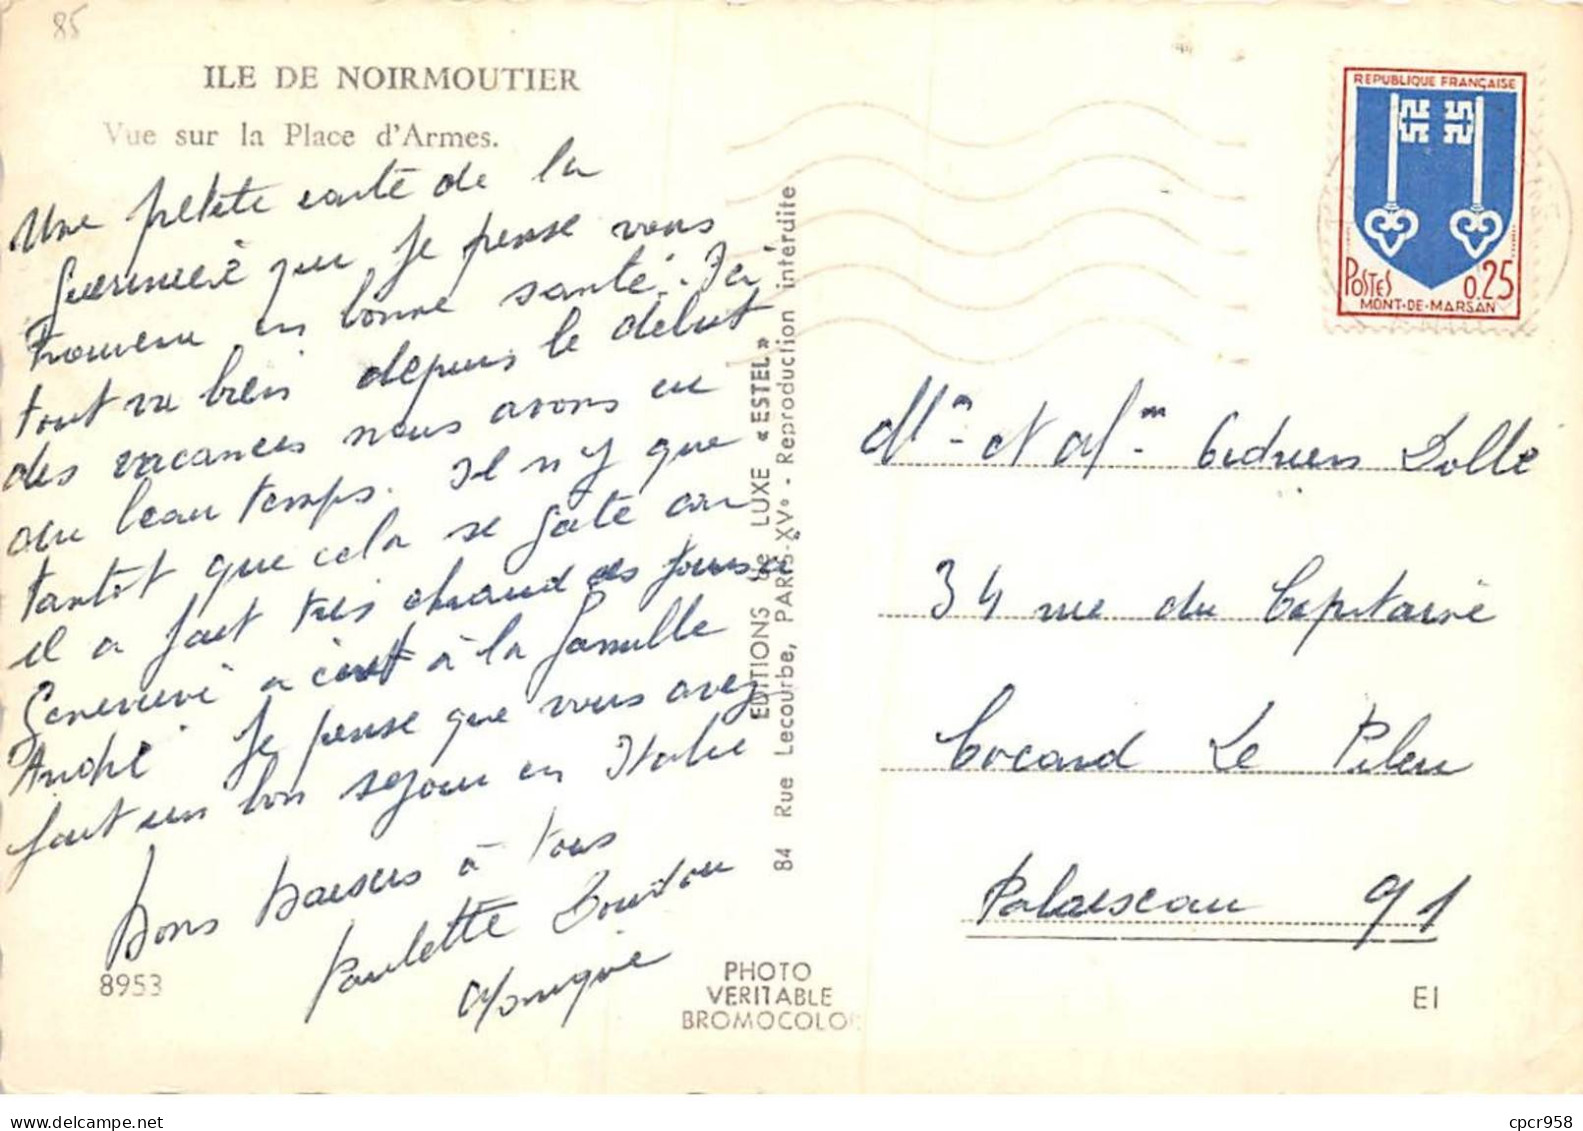 85
ILE DE NOIRMOUTIER
Vue sur la Place d'Armes.
Une petite carte de la
Guerinière que je pense vous
trouvera en bonne santé. Ici
tout va bien depuis le début
des vacances nous avons eu
du beau temps. Il n'y que
tantôt que cela se gate car
il a fait très chaud ces jours-ci
Genevieve a écrit à la famille
André Je pense que vous avez
fait un bon sejour en Italie
Bons baisers à tous
Paulette Bourdon
Monique
8953
EDITIONS de LUXE « ESTEL »
84 Rue Lecourbe, PARIS-XVe - Reproduction interdite
PHOTO
VERITABLE
BROMOCOLOR
REPUBLIQUE FRANÇAISE
POSTES 0,25
MONT-DE-MARSAN
Mr et Mme Adrien Dollé
34 rue du Capitaine
Cocard Le Pileu
Palaiseau 91
EI
cpcr958